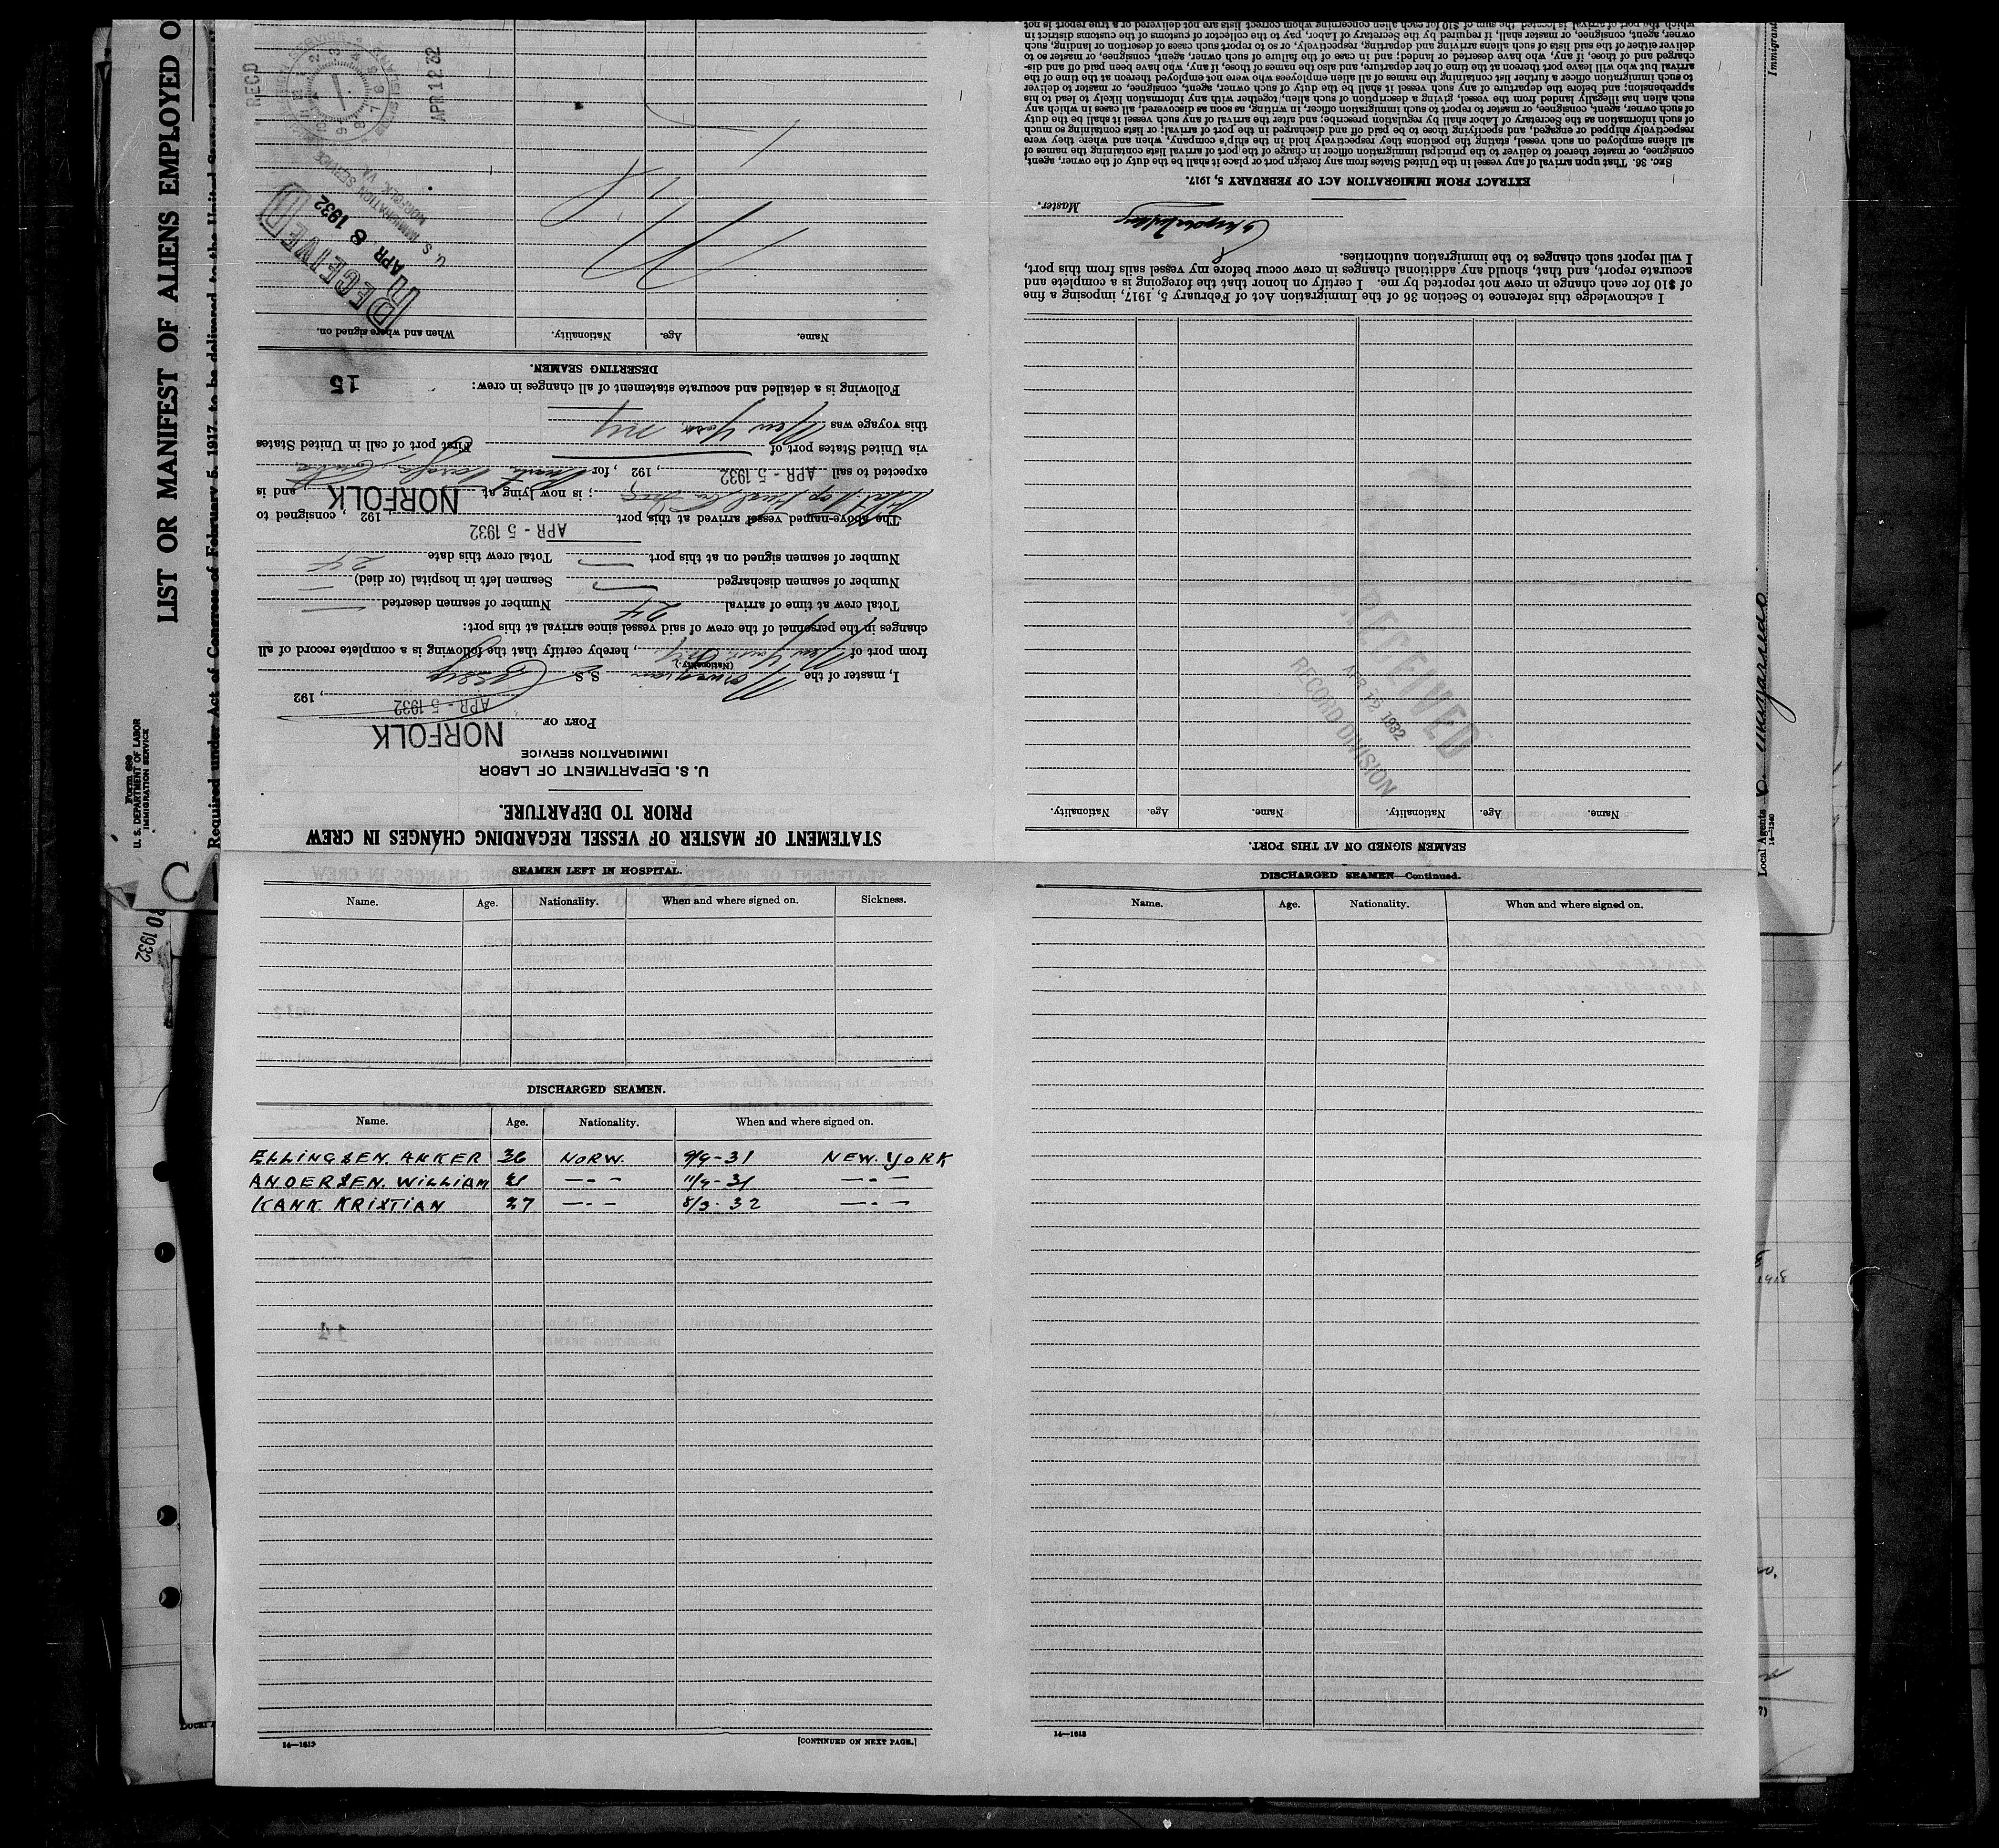 LIST OR MANIFEST OF ALIENS EMPLOYED O
Required under Act of Congress of February 5, 1917, to be delivered to the United
Form 680
U. S. DEPARTMENT OF LABOR
IMMIGRATION SERVICE
C
STATEMENT OF MASTER OF VESSEL REGARDING CHANGES IN CREW
PRIOR TO DEPARTURE.
U. S. DEPARTMENT OF LABOR
IMMIGRATION SERVICE
PORT OF NORFOLK
APR - 5 1932, 192
I, master of the Norwegian S. S.
(Nationality.)
from port of New York NY, hereby certify that the following is a complete record of all
changes in the personnel of the crew of said vessel since arrival at this port:
Total crew at time of arrival 24 Number of seamen deserted
Number of seamen discharged Seamen left in hospital (or died)
Number of seamen signed on at this port Total crew this date 24
APR - 5 1932
The above-named vessel arrived at this port, 192 , consigned to
; is now lying at NORFOLK and is
expected to sail APR - 5 1932, 192 , for Cuba
via United States port of First port of call in United States
this voyage was New York NY
Following is a detailed and accurate statement of all changes in crew:
15
DESERTING SEAMEN.
Name. Age. Nationality. When and where signed on.
RECEIVED
APR 8 1932
U. S. IMMIGRATION SERVICE
NORFOLK, VA.
REC'D
APR 12 32
SEAMEN SIGNED ON AT THIS PORT.
Name. Age. Nationality. Name. Age. Nationality.
RECEIVED
APR 12 1932
RECORD DIVISION
I acknowledge this reference to Section 36 of the Immigration Act of February 5, 1917, imposing a fine
of $10 for each change in crew not reported by me. I certify on honor that the foregoing is a complete and
accurate report, and that, should any additional changes in crew occur before my vessel sails from this port,
I will report such changes to the immigration authorities.
Master.
EXTRACT FROM IMMIGRATION ACT OF FEBRUARY 5, 1917.
SEC. 36. That upon arrival of any vessel in the United States from any foreign port or place it shall be the duty of the owner, agent,
consignee, or master thereof to deliver to the principal immigration officer in charge of the port of arrival lists containing the names of
all aliens employed on such vessel, stating the positions they respectively hold in the ship's company, when and where they were
respectively shipped or engaged, and specifying those to be paid off and discharged in the port of arrival; or lists containing so much
of such information as the Secretary of Labor shall by regulation prescribe; and after the arrival of any such vessel it shall be the duty
of such owner, agent, consignee, or master to report to such immigration officer, in writing, as soon as discovered, all cases in which any
such alien has illegally landed from the vessel, giving a description of such alien, together with any information likely to lead to his
apprehension; and before the departure of any such vessel it shall be the duty of such owner, agent, consignee, or master to deliver
to such immigration officer a further list containing the names of all alien employees who were not employed thereon at the time of the
arrival but who will leave port thereon at the time of her departure, and also the names of those, if any, who have been paid off and dis-
charged and of those, if any, who have deserted or landed; and in case of the failure of such owner, agent, consignee, or master so to
deliver either of the said lists of such aliens arriving and departing, respectively, or so to report such cases of desertion or landing, such
owner, agent, consignee, or master shall, if required by the Secretary of Labor, pay to the collector of customs of the customs district in
which the port of arrival is located the sum of $10 for each alien concerning whom correct lists are not delivered or a true report is not
Immigrant
Local Agents
14—1240
SEAMEN LEFT IN HOSPITAL.
Name. Age. Nationality. When and where signed on. Sickness.
DISCHARGED SEAMEN.
Name. Age. Nationality. When and where signed on.
ELLINGSEN. ANKER 36 NORW. 9/9-31 NEW. YORK
ANDERSEN. WILLIAM 21 —"— 11/9-31 —"—
KANK KRISTIAN 27 —"— 8/3-32 —"—
14—1613
[CONTINUED ON NEXT PAGE.]
DISCHARGED SEAMEN—Continued.
Name. Age. Nationality. When and where signed on.
14—1613
1932
14